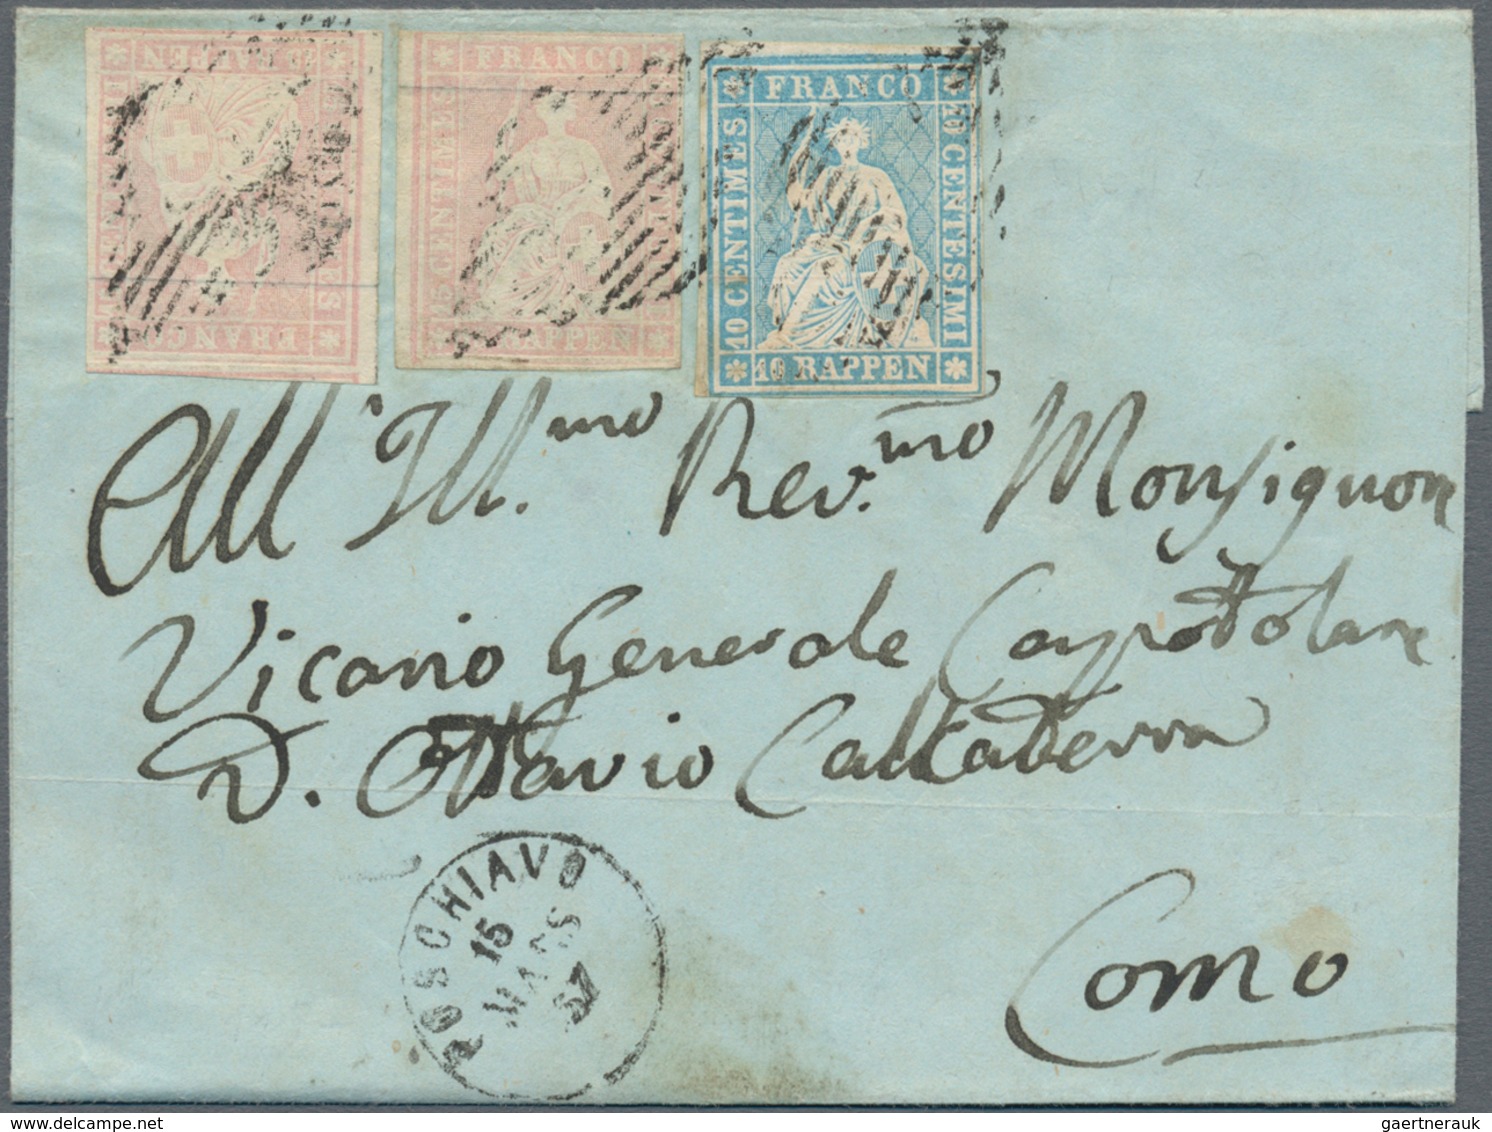 FRANCO
15 RAPPEN
FRANCO
15 CENTIMES.
RAPPEN
FRANCO
10 CENTIMES.
10 CENTESIMI
10 RAPPEN
All' Ill.mo Rev.mo Monsignore
Vicario Generale Capitolare
D. Ottavio Calcaterra
Como
POSCHIAVO
15
MARS
57
gaertnerauk